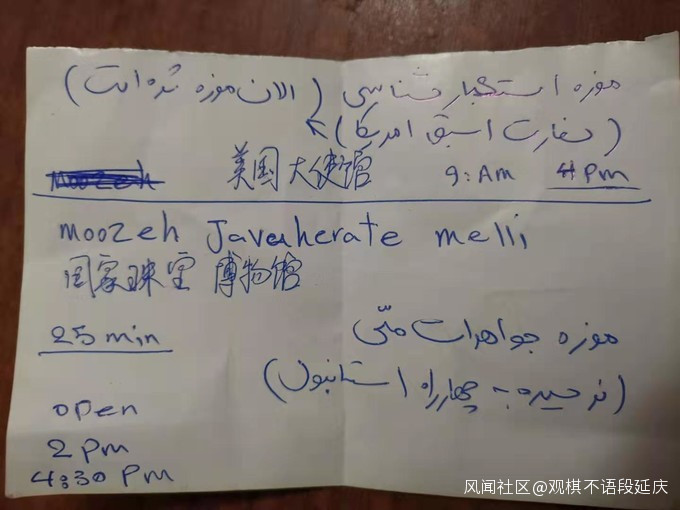 موزه استکبارشناسی (الان موزه شده است)
(سفارت اسبق امریکا)
moozeh 美国大使馆 9:AM 4PM
moozeh Javaherate melli
国家珠宝 博物馆
25 min
موزه جواهرات ملّی
(نرسیده به چهارراه استانبول)
open
2 pm
4:30 PM
风闻社区@观棋不语段延庆